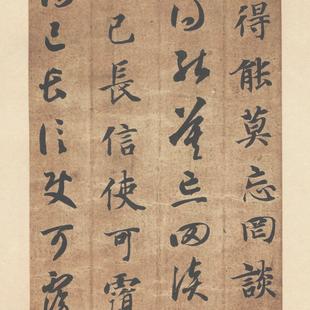 得能莫忘罔談
得能莫忘罔談
己長信使可覆
己長信使可覆